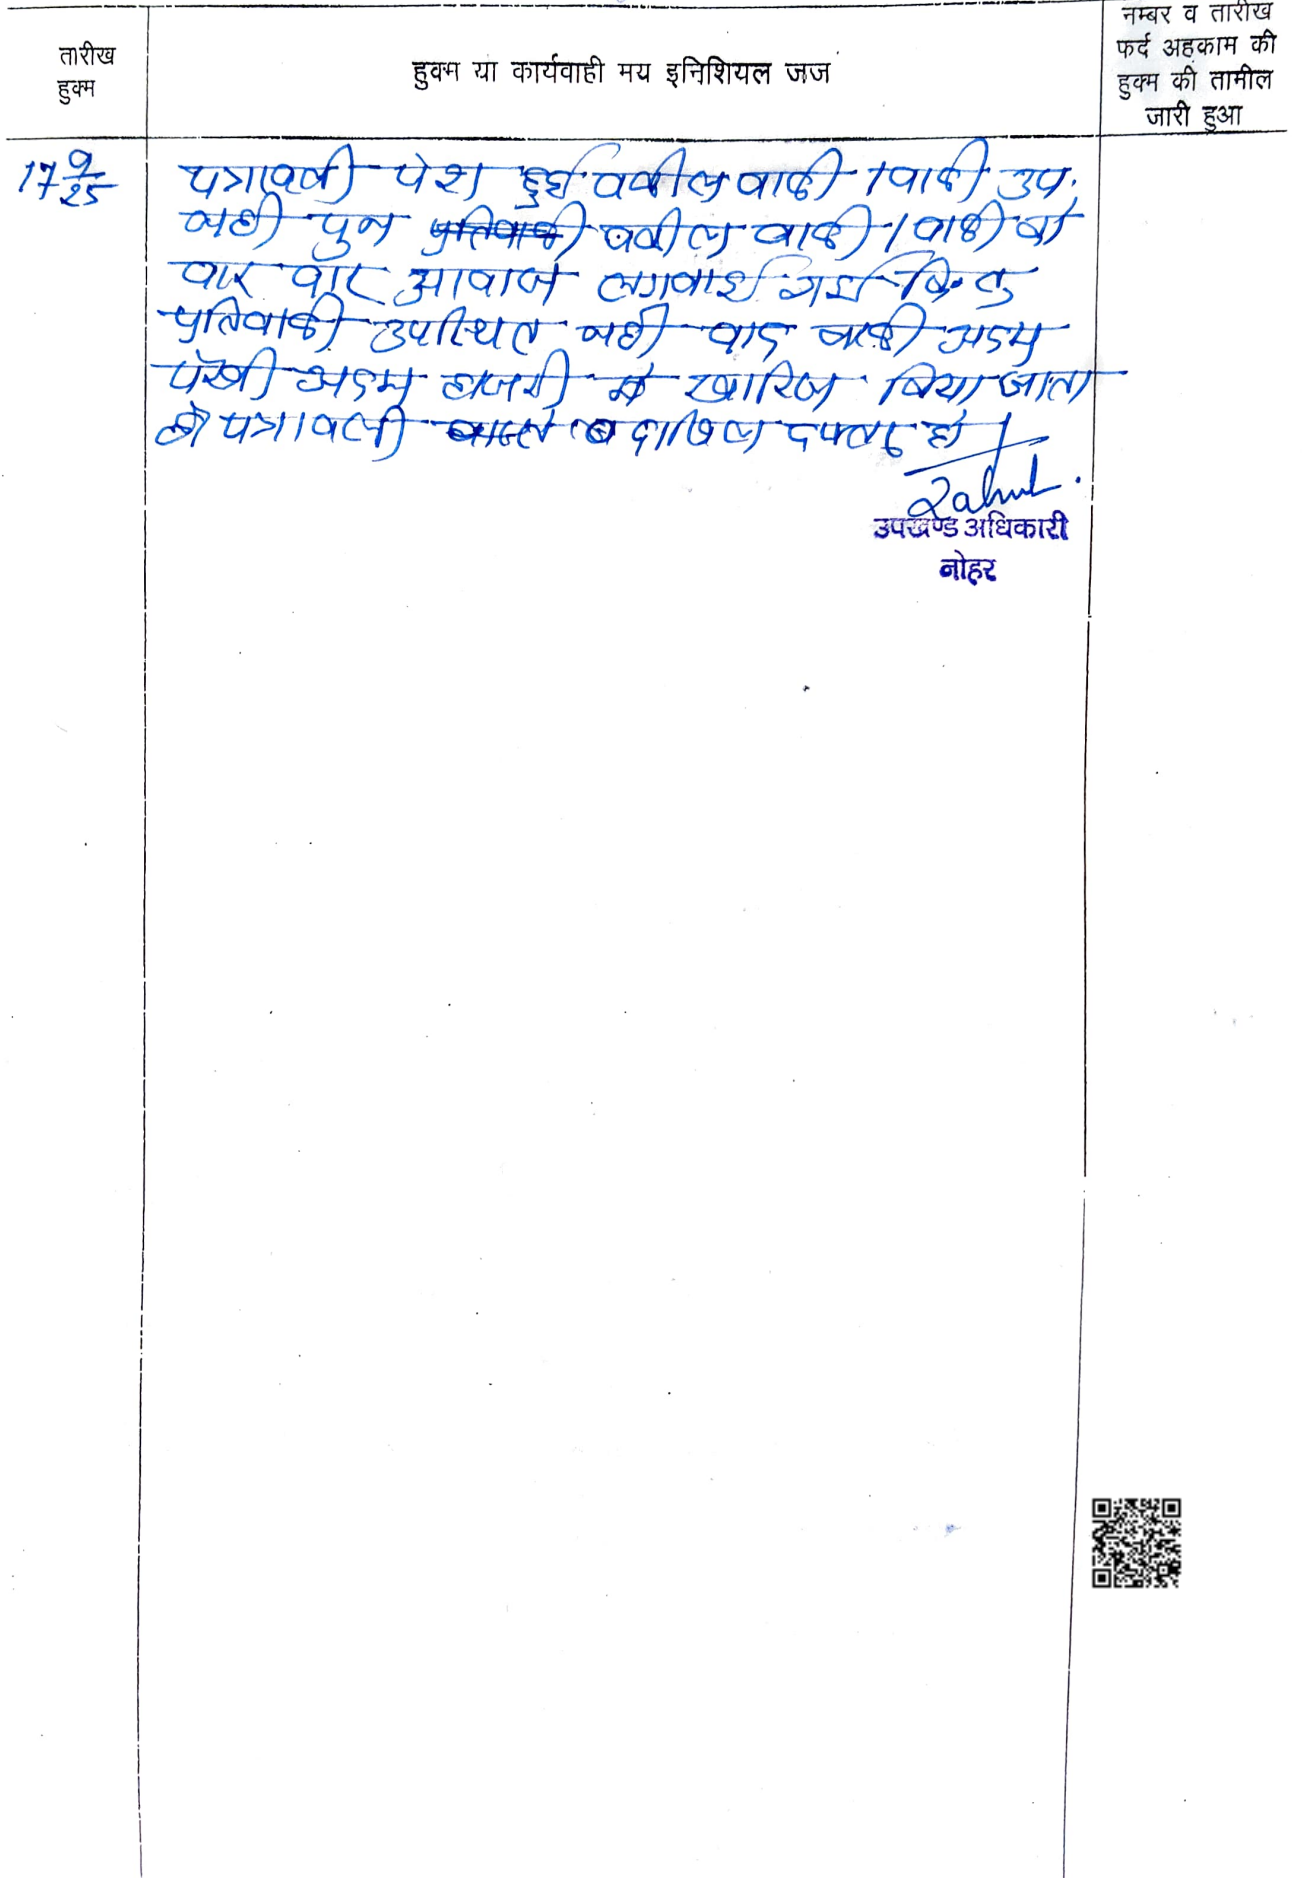 तारीख
हुक्म
हुक्म या कार्यवाही मय इनिशियल जज
नम्बर व तारीख
फर्द अहकाम की
हुक्म की तामील
जारी हुआ
17 9/25
पत्रावली पेश हुई वकील वादी / वादी उप.
नही पुन प्रतिवादी वकील वादी / वादी को
वार वार आवाज लगवाई गई किन्तु
प्रतिवादी उपस्थित नही वाद वादी अदम
पैरवी अदम हाजरी में खारिज किया जाता
है पत्रावली दाखिल दफ्तर हो
Rahul
उपखण्ड अधिकारी
नोहर